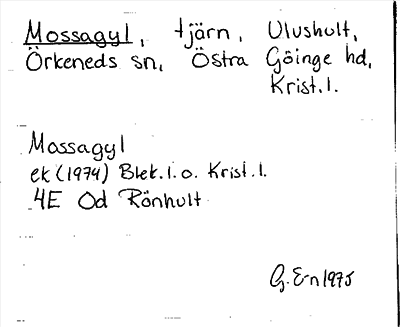 Mossagyl, tjärn, Ulvshult,
Örkeneds sn, Östra Göinge hd,
Krist.l.
Mossagyl
ek (1974) Blek.l.o. Krist.l.
4E Od Rönhult
G. E-n 1975